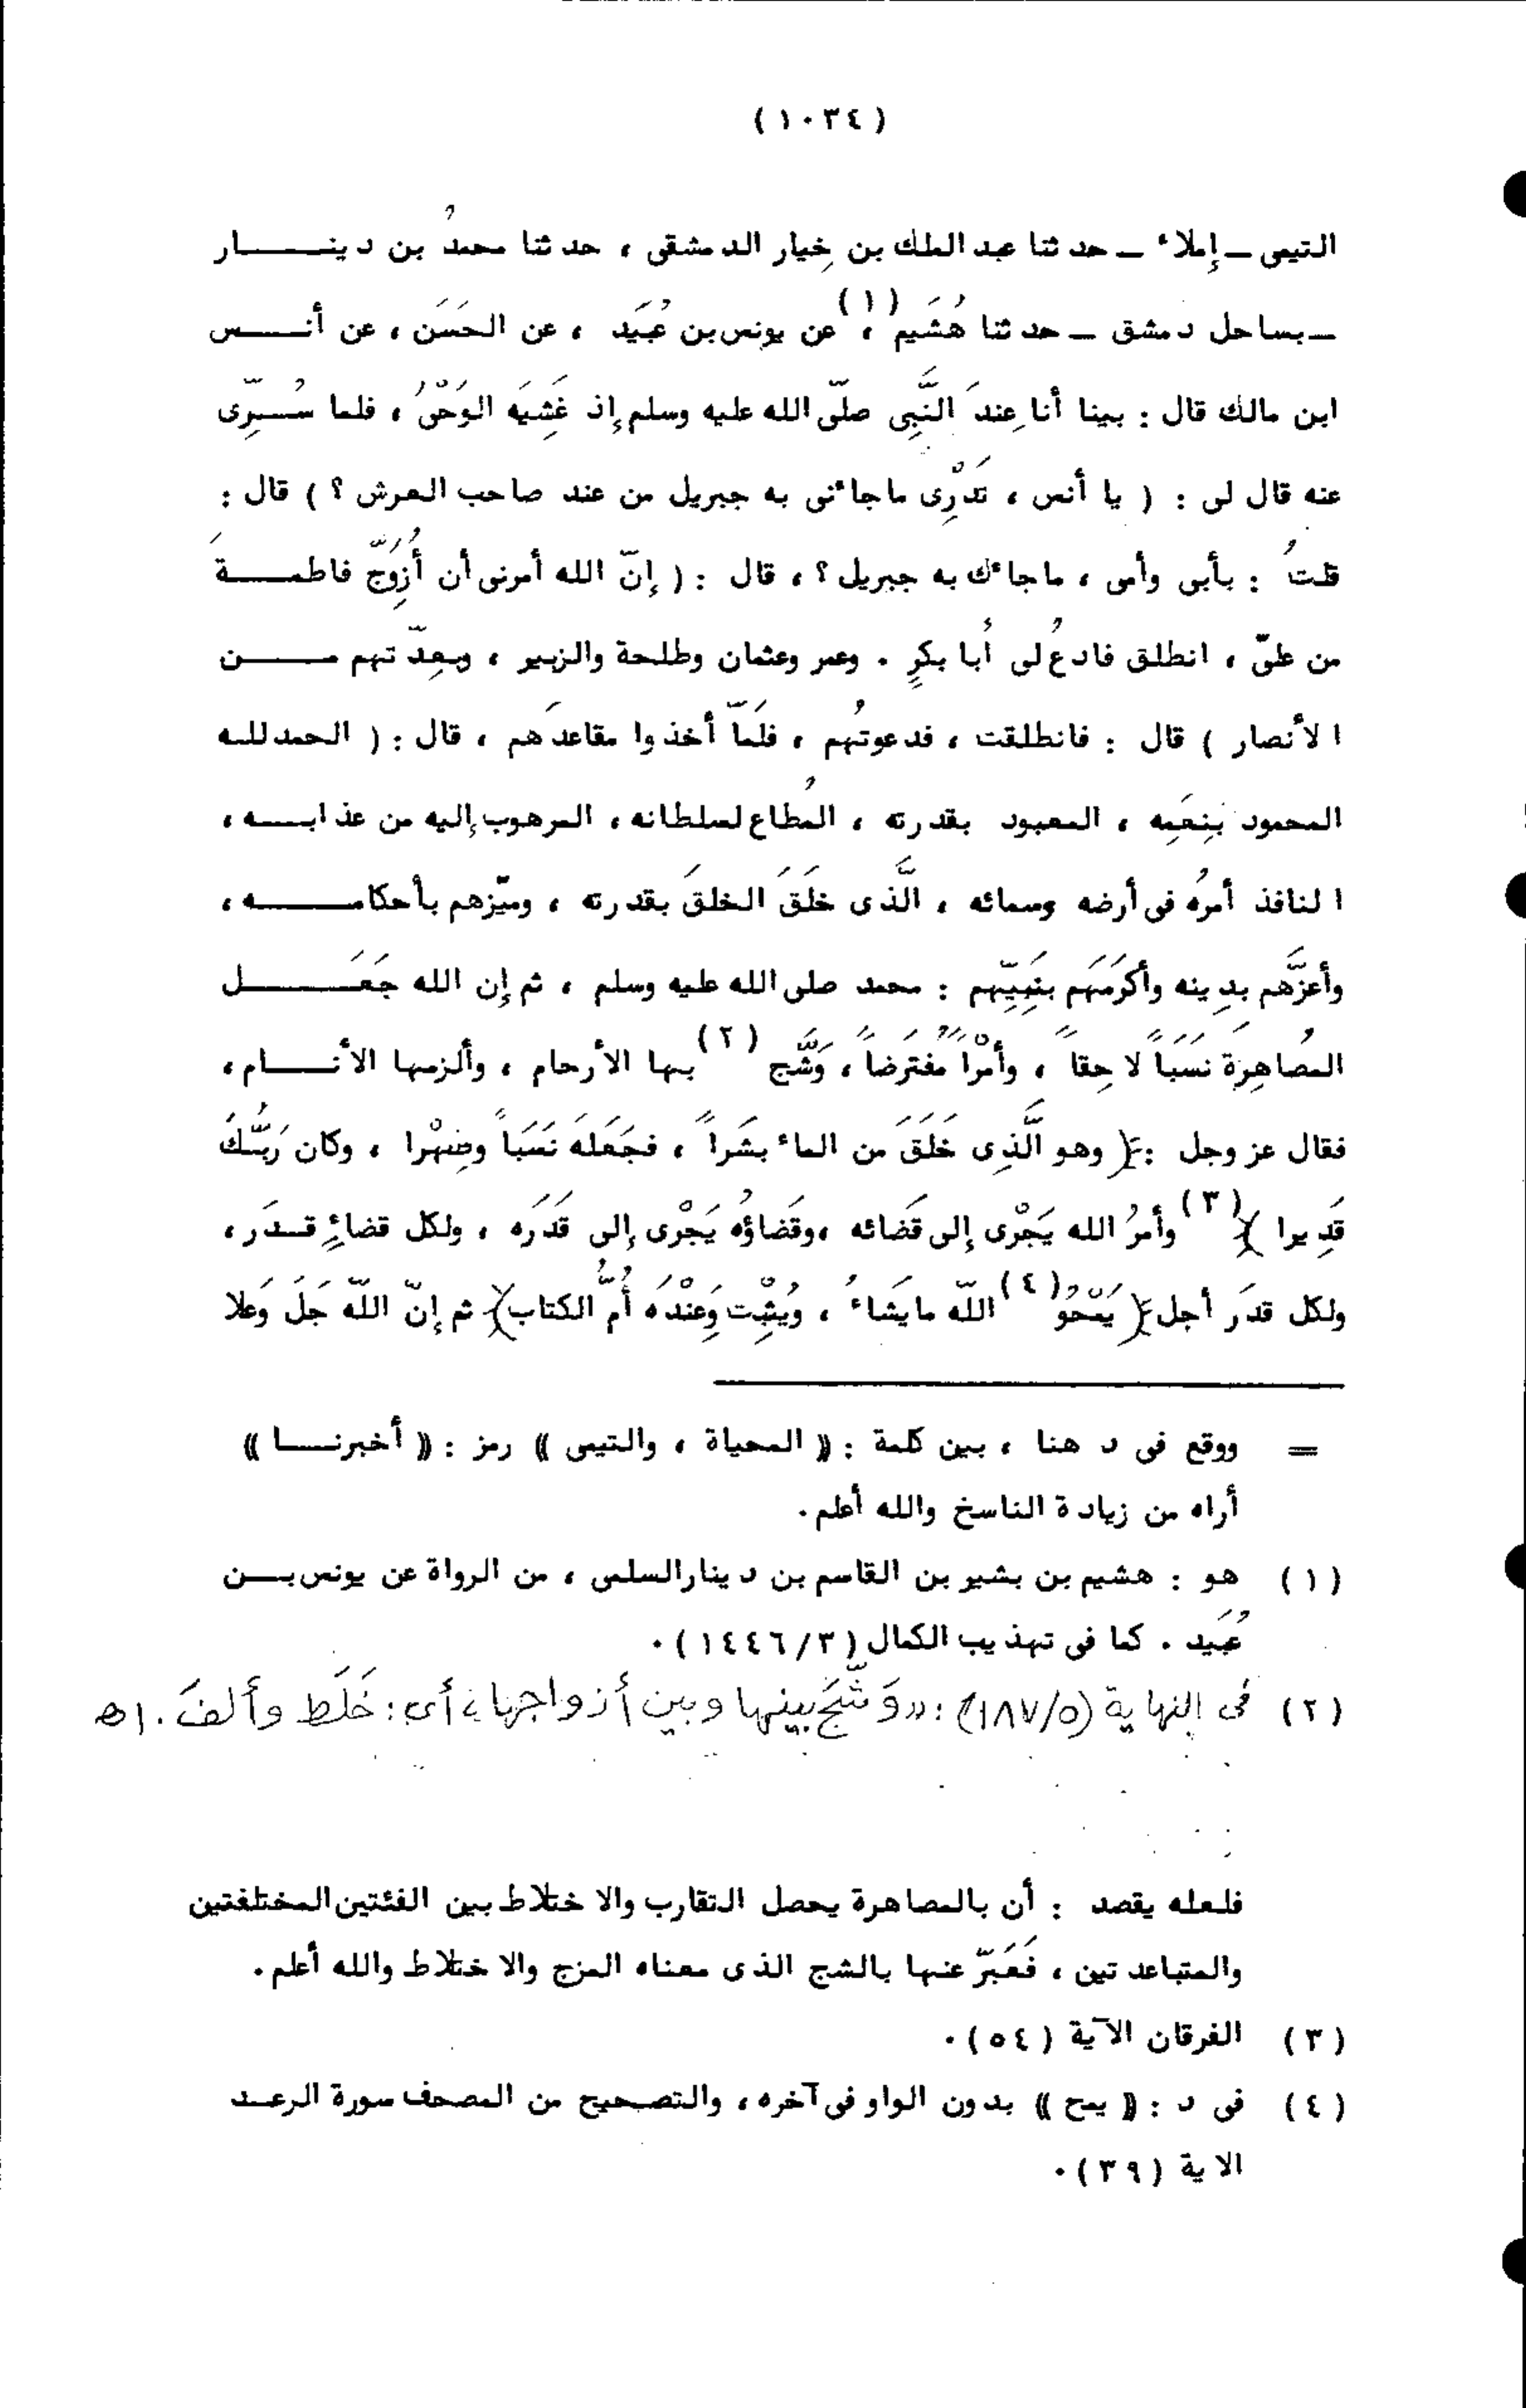 (١٠٣٤)
التيمى ــ إملاء ــ حدثنا عبد الملك بن خِيار الدمشقى ، حدثنا محمدُ بن دينـــــار
ــ بساحل دمشق ــ حدثنا هُشَيم (١)، عن يونس بن عُبَيد ، عن الحَسَن ، عن أنـــس
ابن مالك قال : بينا أنا عِندَ النَّبِى صلّى الله عليه وسلم إِذ غَشِيَه الوَحْىُ ، فلما سُـــرِّى
عنه قال لى : ( يا أنس ، تَدْرِى ما جاءنى به جبريل من عند صاحب العرش ؟ ) قال :
قلتُ : بأبى وأمى ، ما جاءك به جبريل ؟ ، قال : ( إِنّ الله أمرنى أن أُزَوِّجَ فاطمـــةَ
من علىّ ، انطلق فادعُ لى أبا بكرٍ . وعمر وعثمان وطلحة والزبير ، وبِعِدّتهم مـــن
الأنصار ) قال : فانطلقت ، فدعوتُهم ، فلَمّا أخذوا مقاعدَهم ، قال : ( الحمد للـه
المحمود بنِعَمِه ، المعبود بقدرته ، المُطاع لسلطانه ، المرهوب إليه من عذابـــه ،
النافذ أمرُه فى أرضه وسمائه ، الَّذى خلَقَ الخلقَ بقدرته ، وميّزهم بأحكامـــــه ،
وأعزَّهم بدِينه وأكرَمَهم بنَبِيّهم : محمد صلى الله عليه وسلم ، ثم إِن الله جَعَـــــل
المُصاهِرَة نَسَبَاً لاحِقاً ، وأمْرَاً مُفْتَرَضاً ، وَشَّج (٢) بها الأرحام ، وألزمها الأنـــام ،
فقال عز وجل : ﴿ وهو الَّذِى خَلَقَ من الماء بشَراً ، فجَعَلَه نَسَبَاً وصِهْرا ، وكان رَبُّـكَ
قَدِيرا ﴾ (٣) وأمرُ الله يَجْرى إِلى قَضائه ، وقَضاؤُه يَجْرى إِلى قَدَرَه ، ولكل قضاءٍ قـدَر ،
ولكل قدَر أجل ﴿ يَمْحُوُ (٤) اللّه ما يَشاءُ ، ويُثْبِت وَعِنْدَه أُمُّ الكتاب ﴾ ثم إِنّ اللّهَ جَلَ وَعلا
= ووقع فى د هنا ، بين كلمة : (( المحياة ، والتيمى )) رمز : (( أخبرنـــا ))
أراه من زيادة الناسخ والله أعلم .
(١) هو : هشيم بن بشير بن القاسم بن دينار السلمى ، من الرواة عن يونس بـــن
عُبَيد . كما فى تهذيب الكمال (١٤٤٦/٣) .
(٢) فى النهاية (١٨٧/٥) : (( وَشَّجَ بينها وبين أزواجها ، أى : خَلَط وألفَ . اهـ
فلعله يقصد : أن بالمصاهرة يحصل التقارب والاختلاط بين الفئتين المختلفتين
والمتباعدتين ، فَعَبَرّ عنها بالشج الذى معناه المزج والاختلاط والله أعلم .
(٣) الفرقان الآية (٥٤) .
(٤) فى د : (( يمح )) بدون الواو فى آخره ، والتصحيح من المصحف سورة الرعـد
الاية (٣٩) .